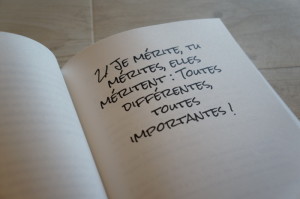 2/ Je mérite, tu
mérites, elles
méritent : Toutes
différentes,
toutes
importantes !